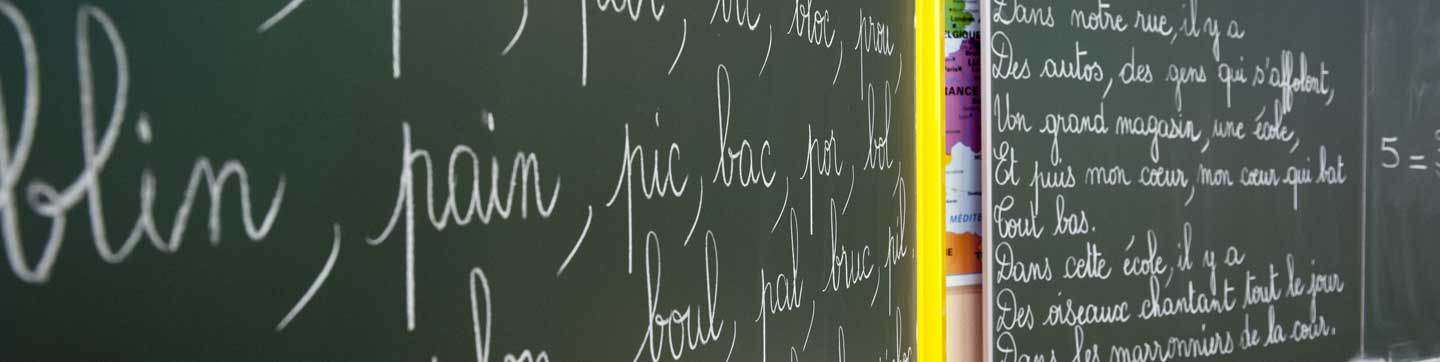 bloc, prou,
blin, pain, pic, bac, por, bol,
boul, pal, bruc, pil.
London
ELGIQUE
RANCE
MÉDITE
Dans notre rue, il y a
Des autos, des gens qui s'affolent,
Un grand magasin, une école,
Et puis mon cœur, mon cœur qui bat
Tout bas.
Dans cette école, il y a
Des oiseaux chantant tout le jour
Dans les marronniers de la cour.
5 =